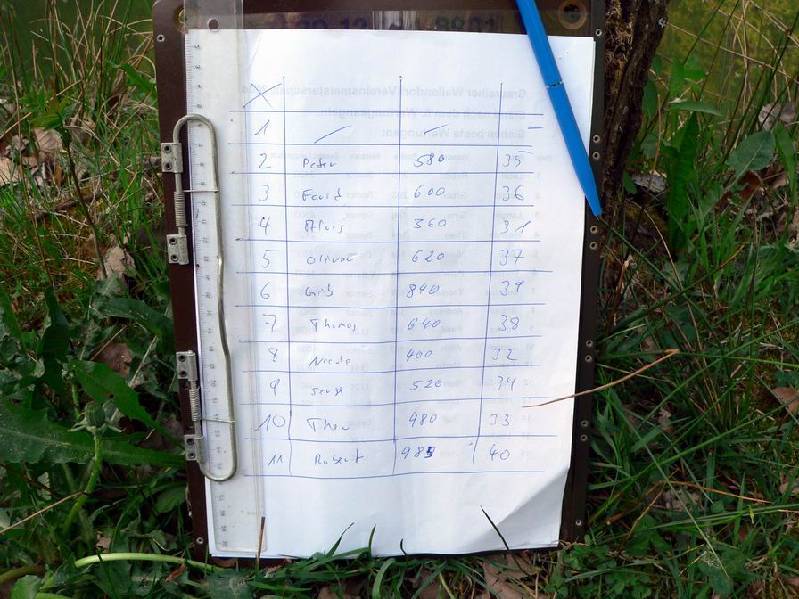 X
1 — — —
2 Peter 580 35
3 600 36
4 Alois 360 31
5 Oliver 620 37
6 Gerd 840 39
7 Thomas 640 38
8 Nicole 400 32
9 520 34
10 Theo 480 33
11 Robert 985 40